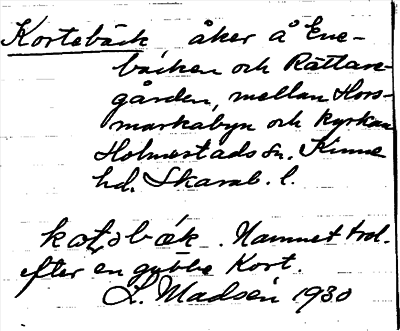 Kortebäck, åker å Ene-
backen och Rättare-
gården, mellan Hors-
markabyn och kyrkan
Holmestads sn. Kinne
hd. Skarab. l.
Namnet trol.
efter en gubbe Kort.
L. Madsén 1930